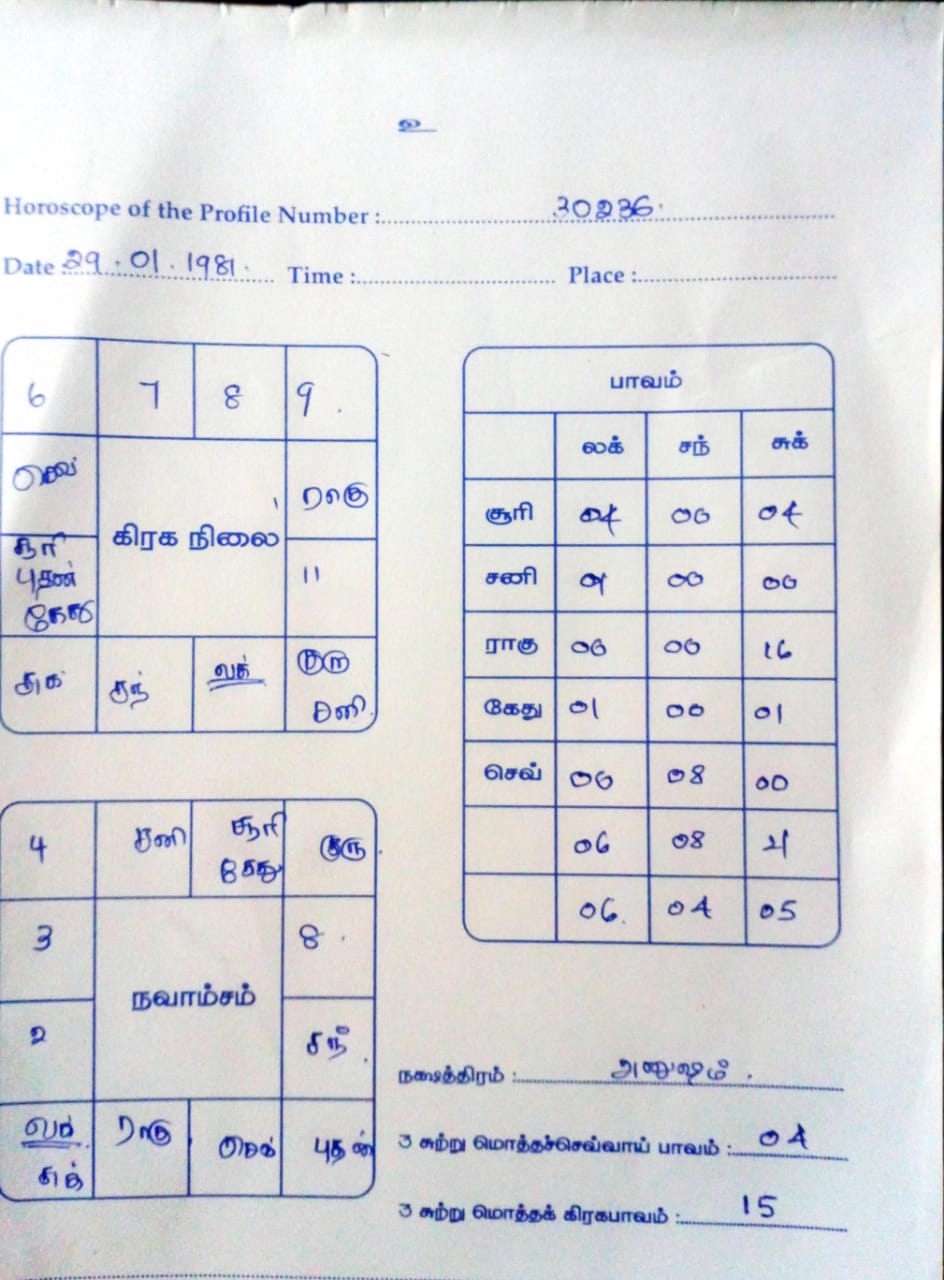 உ
Horoscope of the Profile Number : 30236.
Date 29.01.1981. Time : Place :
6 7 8 9.
செவ் ராகு
கிரக நிலை
சூரி
புதன்
கேது
11
சுக் சந் லக் குரு
சனி.
பாவம்
லக் சந் சுக்
சூரி 04 00 04
சனி 00 00
ராகு 00 00 16
கேது 01 00 01
செவ் 00 08 00
06 08 21
06. 04 05
4 சனி சூரி
கேது
குரு.
3 8.
நவாம்சம்
2 சந்.
லக்
சுக்
ராகு செவ் புதன்
நக்ஷத்திரம் : அனுஷம்.
3 சுற்று மொத்தச்செவ்வாய் பாவம் : 04
3 சுற்று மொத்தக் கிரகபாவம் : 15